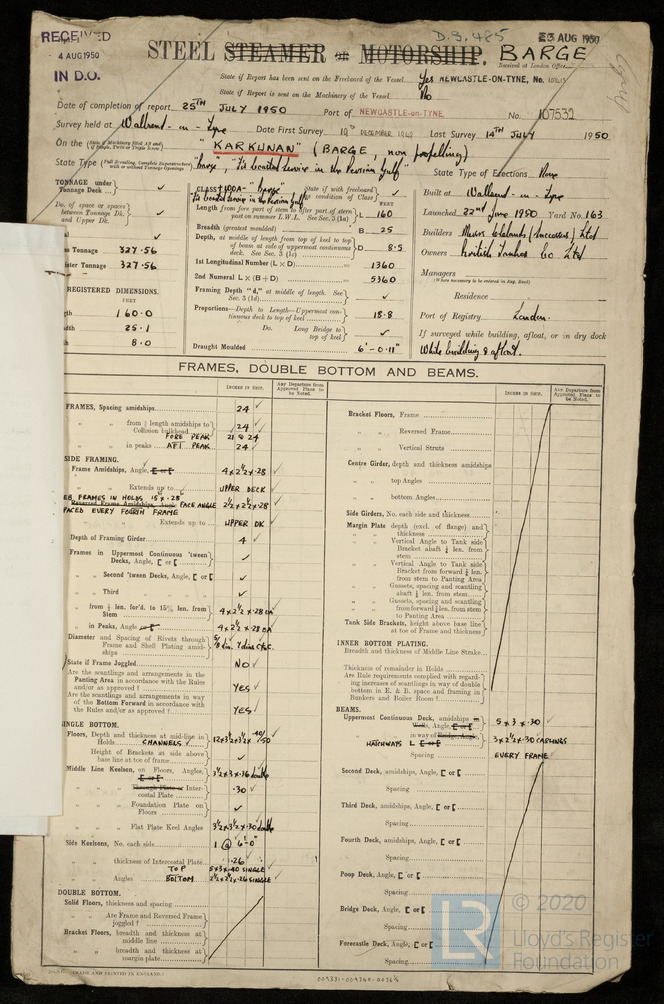 RECEIVED
4 AUG 1950
IN D.O.
D.S. 485
23 AUG 1950
Received at London Office
STEEL STEAMER OR MOTORSHIP. BARGE
State if Report has been sent on the Freeboard of the Vessel. Yes NEWCASTLE-ON-TYNE, No.
State if Report is sent on the Machinery of the Vessel. No
Date of completion of report 25TH JULY 1950 Port of NEWCASTLE-ON-TYNE No. 107532
Survey held at Wallsend-on-Tyne Date First Survey DECEMBER 1949 Last Survey 14TH JULY 1950
On the "KARKUNAN" (BARGE, non propelling)
State Type "Barge", "To be coasted service in the Persian Gulf" State Type of Erections None
TONNAGE under Tonnage Deck ... ✓
No. of space or spaces between Tonnage Dk. and Upper Dk. ✓
ss Tonnage 327.56
ister Tonnage 327.56
REGISTERED DIMENSIONS.
FEET
gth 160.0
dth 25.1
8.0
CLASS +100A- "Barge"
State if with freeboard as condition of Class ✓
FEET
Length from fore part of stem to after part of stern post on summer L.W.L. See Sec. 3 (1a) L 160
Breadth (greatest moulded) B 25
Depth, at middle of length from top of keel to top of beam at side of uppermost continuous deck. See Sec. 3 (1c) D 8.5
1st Longitudinal Number (L × D) 1360
2nd Numeral L × (B + D) 5360
Framing Depth "d," at middle of length. See Sec. 3 (1d) ✓
Proportions—Depth to Length—Uppermost continuous deck to top of keel 18.8
Do. Long Bridge to top of keel ✓
Draught Moulded 6'-0.11"
Built at Wallsend-on-Tyne
Launched 22nd June 1950 Yard No. 163
Builders Messrs Clelands (Successors) Ltd
Owners British Tanker Co Ltd
Managers
(Where necessary to be entered in Reg. Book)
Residence
Port of Registry London.
If surveyed while building, afloat, or in dry dock
While building & afloat.
FRAMES, DOUBLE BOTTOM AND BEAMS.
INCHES IN SHIP.
Any Departure from Approved Plans to be Noted.
FRAMES, Spacing amidships 24 ✓
" " from ⅗ length amidships to Collision bulkhead 24 ✓
" " in peaks FORE PEAK 21 & 24
AFT PEAK 24 ✓
SIDE FRAMING.
Frame Amidships, Angle, [ or [ 4 × 2½ × .28 ✓
" " Extends up to UPPER DECK
EB FRAMES IN HOLDS 15" × .28"
Reversed Frame Amidships, Angle FACE ANGLE 2½ × 2½ × .28 ✓
PACED EVERY FOURTH FRAME
" " Extends up to UPPER DK
Depth of Framing Girder 4 ✓
Frames in Uppermost Continuous 'tween Decks, Angle, [ or [ ✓
" Second 'tween Decks, Angle, [ or [ ✓
" Third " " " ✓
" from ⅕ len. for'd. to 15% len. from Stem 4 × 2½ × .28 OA
" in Peaks, Angle or [ 4 × 2½ × .28 OA
Diameter and Spacing of Rivets through Frame and Shell Plating amidships
State if Frame Joggled NO ✓
Are the scantlings and arrangements in the Panting Area in accordance with the Rules and/or as approved? YES ✓
Are the scantlings and arrangements in way of the Bottom Forward in accordance with the Rules and/or as approved? YES ✓
INGLE BOTTOM.
Floors, Depth and thickness at mid-line in Holds CHANNELS ✓ 12 × 3½ × 3½ × .40/.50
Height of Brackets at side above base line at toe of frame ✓
Middle Line Keelson, on Floors, Angles, [ or [ 3½ × 3 × .36 double
" " Through Plate or Intercostal Plate .30 ✓
" " Foundation Plate on Floors ✓
" " Flat Plate Keel Angles 3½ × 3½ × .30 double
Side Keelsons, No. each side 1 @ 6'-0"
" " thickness of Intercostal Plate .26 ✓
" " Angles TOP 5 × 3 × .40 SINGLE
BOTTOM 2½ × 2½ × .26 SINGLE
DOUBLE BOTTOM.
Solid Floors, thickness and spacing
" " Are Frame and Reversed Frame joggled?
Bracket Floors, breadth and thickness at middle line
" " breadth and thickness at margin plate
Bracket Floors, Frame
" " Reversed Frame
" " Vertical Struts
Centre Girder, depth and thickness amidships
" " top Angles
" " bottom Angles
Side Girders, No. each side and thickness
Margin Plate depth (excl. of flange) and thickness
" " Vertical Angle to Tank side Bracket abaft ¼ len. from stem
" " Vertical Angle to Tank side Bracket from forward ¼ len. from stem to Panting Area
" " Gussets, spacing and scantling abaft ¼ len. from stem
" " Gussets, spacing and scantling from forward ¼ len. from stem to Panting Area
Tank Side Brackets, height above base line at toe of Frame and thickness
INNER BOTTOM PLATING.
Breadth and thickness of Middle Line Strake
Thickness of remainder in Holds
Are Rule requirements complied with regarding increases of scantlings in way of double bottom in E. & B. space and framing in Bunkers and Boiler Room?
BEAMS.
Uppermost Continuous Deck, amidships 5 × 3 × .30 ✓
" " in way of HATCHWAYS L [ or [ 3 × 2½ × .30 CARLINGS
Spacing EVERY FRAME
Second Deck, amidships, Angle, [ or [
Spacing
Third Deck, amidships, Angle, [ or [
Spacing
Fourth Deck, amidships, Angle, [ or [
Spacing
Poop Deck, Angle, [ or [
Spacing
Bridge Deck, Angle, [ or [
Spacing
Forecastle Deck, Angle, [ or [
Spacing
(MADE AND PRINTED IN ENGLAND.)
LR
© 2020
Lloyd's Register
Foundation